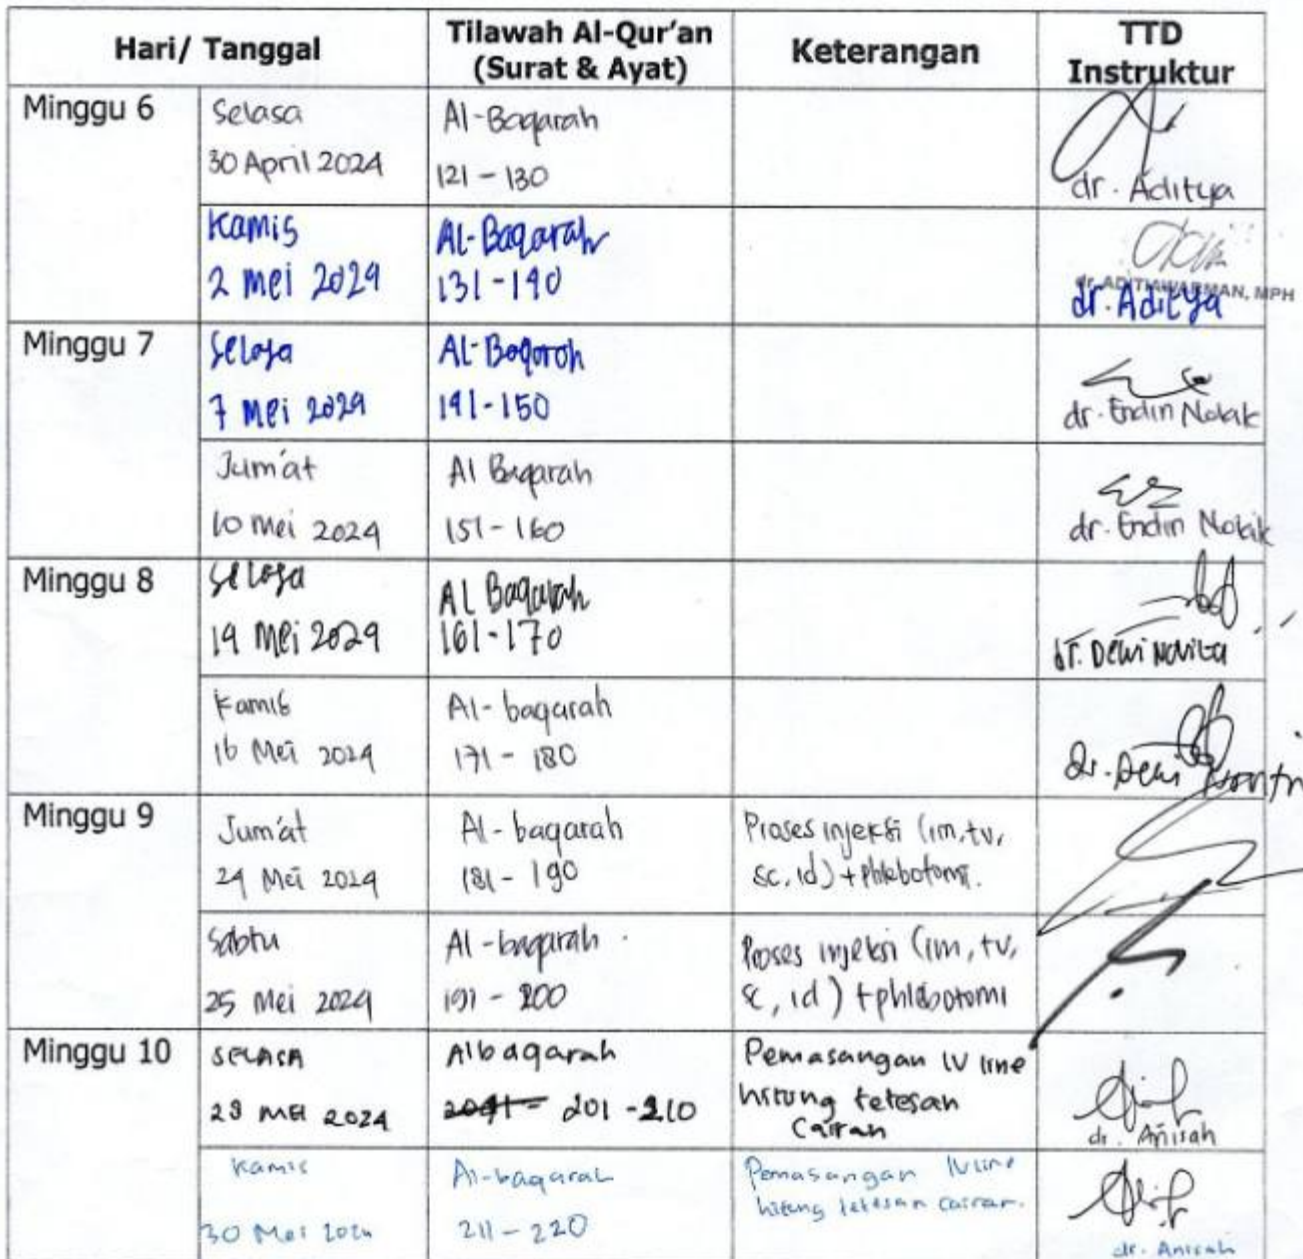 Hari/ Tanggal
Tilawah Al-Qur'an
(Surat & Ayat)
Keterangan
TTD
Instruktur
Minggu 6
Selasa
30 April 2024
Al-Baqarah
121 - 130
dr. Aditya
Kamis
2 mei 2024
Al-Baqarah
131-140
dr. ADITIAWARMAN, MPH
dr. Aditya
Minggu 7
Selasa
7 Mei 2024
Al-Baqarah
141-150
dr. Endin Nokik
Jum'at
10 mei 2024
Al Baqarah
151-160
dr. Endin Nokik
Minggu 8
Selasa
14 Mei 2024
Al Baqarah
161-170
dr. Dewi Novita
Kamis
16 Mei 2024
Al-baqarah
171 - 180
dr. Dewi
Minggu 9
Jum'at
24 Mei 2024
Al-baqarah
181 - 190
Proses injeksi (im, iv,
sc, id) + phlebotomi.
Sabtu
25 Mei 2024
Al-baqarah
191 - 200
Proses injeksi (im, iv,
sc, id) + phlebotomi
Minggu 10
SELASA
28 MEI 2024
Albaqarah
201 - 210
Pemasangan IV line
hitung tetesan
Cairan
dr. Anisah
Kamis
30 Mei 2024
Al-baqarah
211 - 220
Pemasangan IV line
hitung tetesan cairan.
dr. Anisah